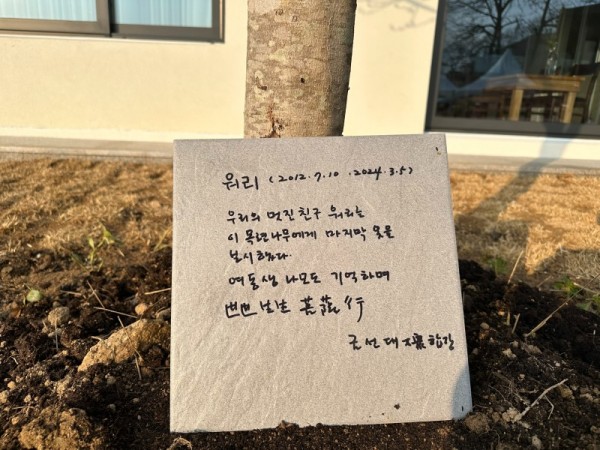 워리 (2012.7.10 .2024.3.5)
우리의 멋진친구 워리는
이 목련나무에게 마지막 몸을
보시했다.
여동생 나모도 기억하며
世世生生 菩薩行
금선대 합장